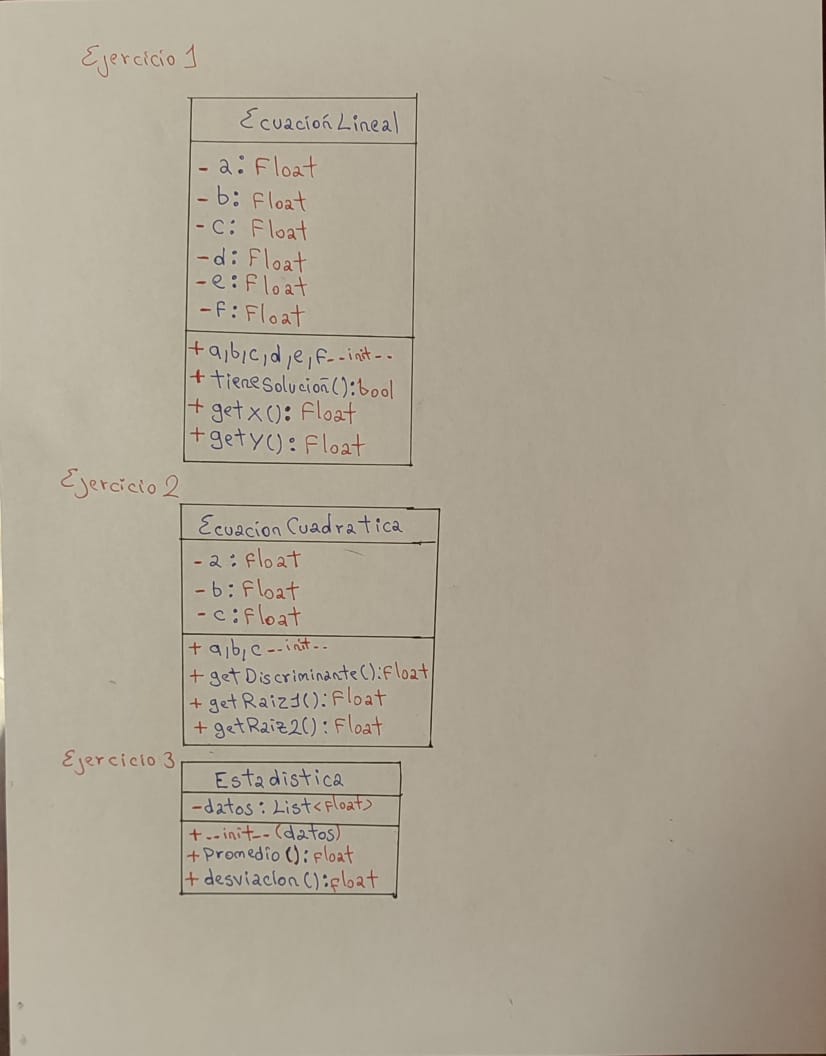 Ejercicio 1
Ecuación Lineal
- a: Float
- b: Float
- c: Float
- d: Float
- e: Float
- F: Float
+ a,b,c,d,e,F--init--
+ tieneSolución():bool
+ getX(): Float
+ getY(): Float
Ejercicio 2
Ecuacion Cuadratica
- a: Float
- b: Float
- c: Float
+ a,b,c--init--
+ getDiscriminante():Float
+ getRaiz1(): Float
+ getRaiz2(): Float
Ejercicio 3
Estadistica
-datos: List<Float>
+--init--(datos)
+Promedio(): Float
+desviacion():float